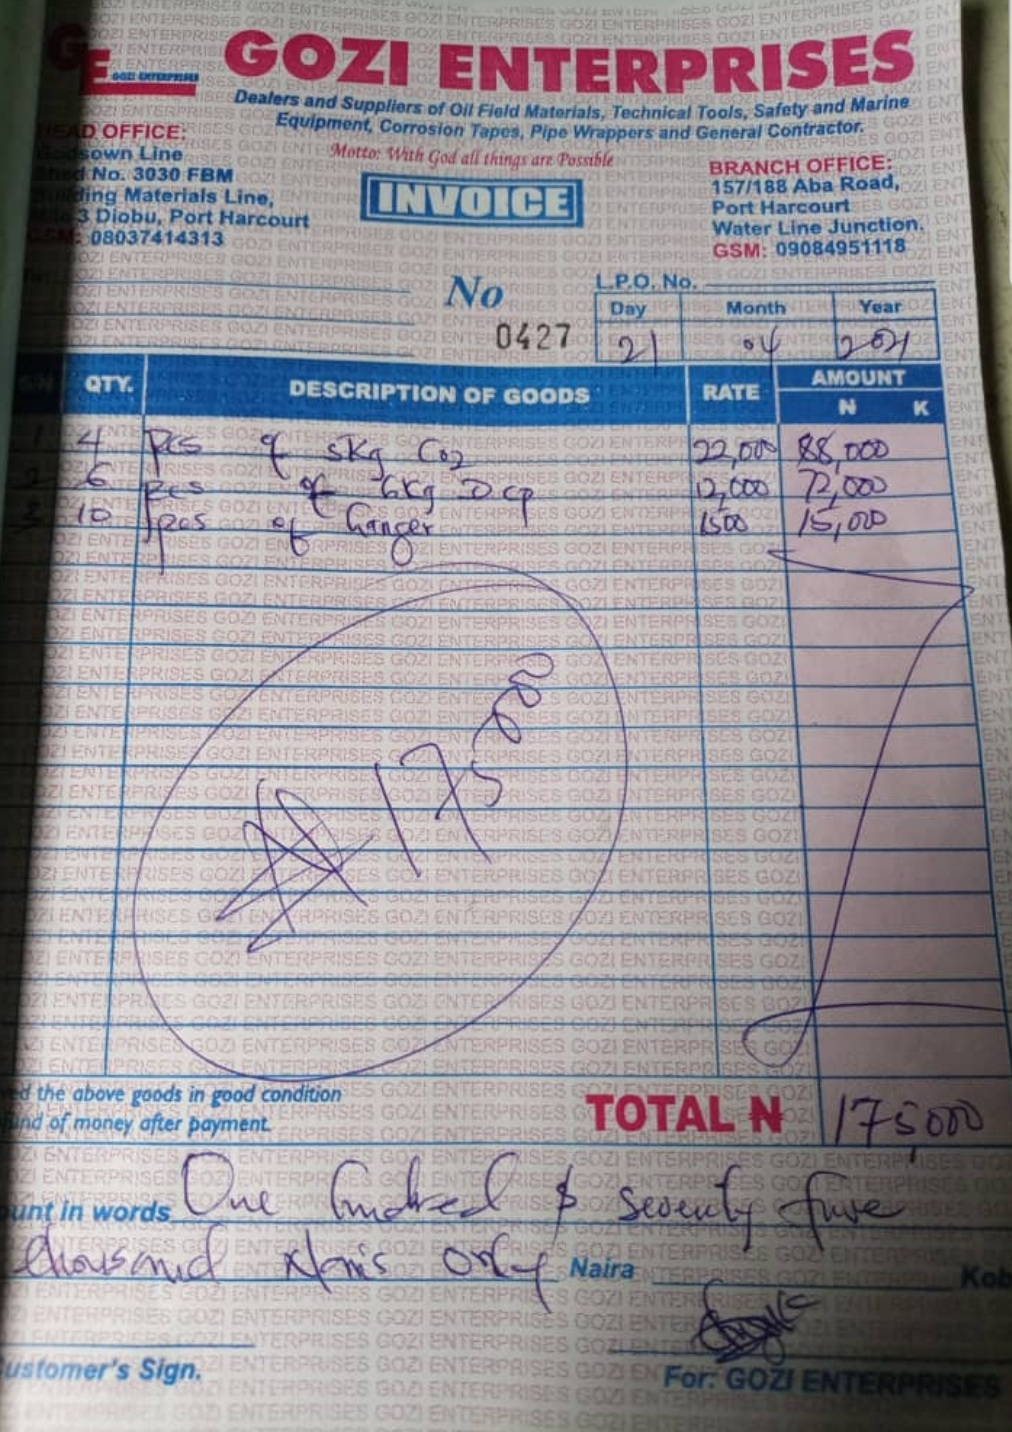 GE GOZI ENTERPRISES
GOZI ENTERPRISES
Dealers and Suppliers of Oil Field Materials, Technical Tools, Safety and Marine
Equipment, Corrosion Tapes, Pipe Wrappers and General Contractor.
Motto: With God all things are Possible
HEAD OFFICE:
Godsown Line
Shed No. 3030 FBM
Building Materials Line,
Mile 3 Diobu, Port Harcourt
GSM: 08037414313
INVOICE
BRANCH OFFICE:
157/188 Aba Road,
Port Harcourt
Water Line Junction.
GSM: 09084951118
No 0427
L.P.O. No.
Day Month Year
21 04 2021
S/N QTY. DESCRIPTION OF GOODS RATE AMOUNT
N K
1 4 pcs of 5kg Co2 22,000 88,000
2 6 pcs of 6kg Dcp 12,000 72,000
3 10 pcs of hanger 1500 15,000
175
ed the above goods in good condition
und of money after payment.
TOTAL ₦ 175,000
unt in words One hundred & seventy five
thousand only Naira Kob
ustomer's Sign.
For: GOZI ENTERPRISES